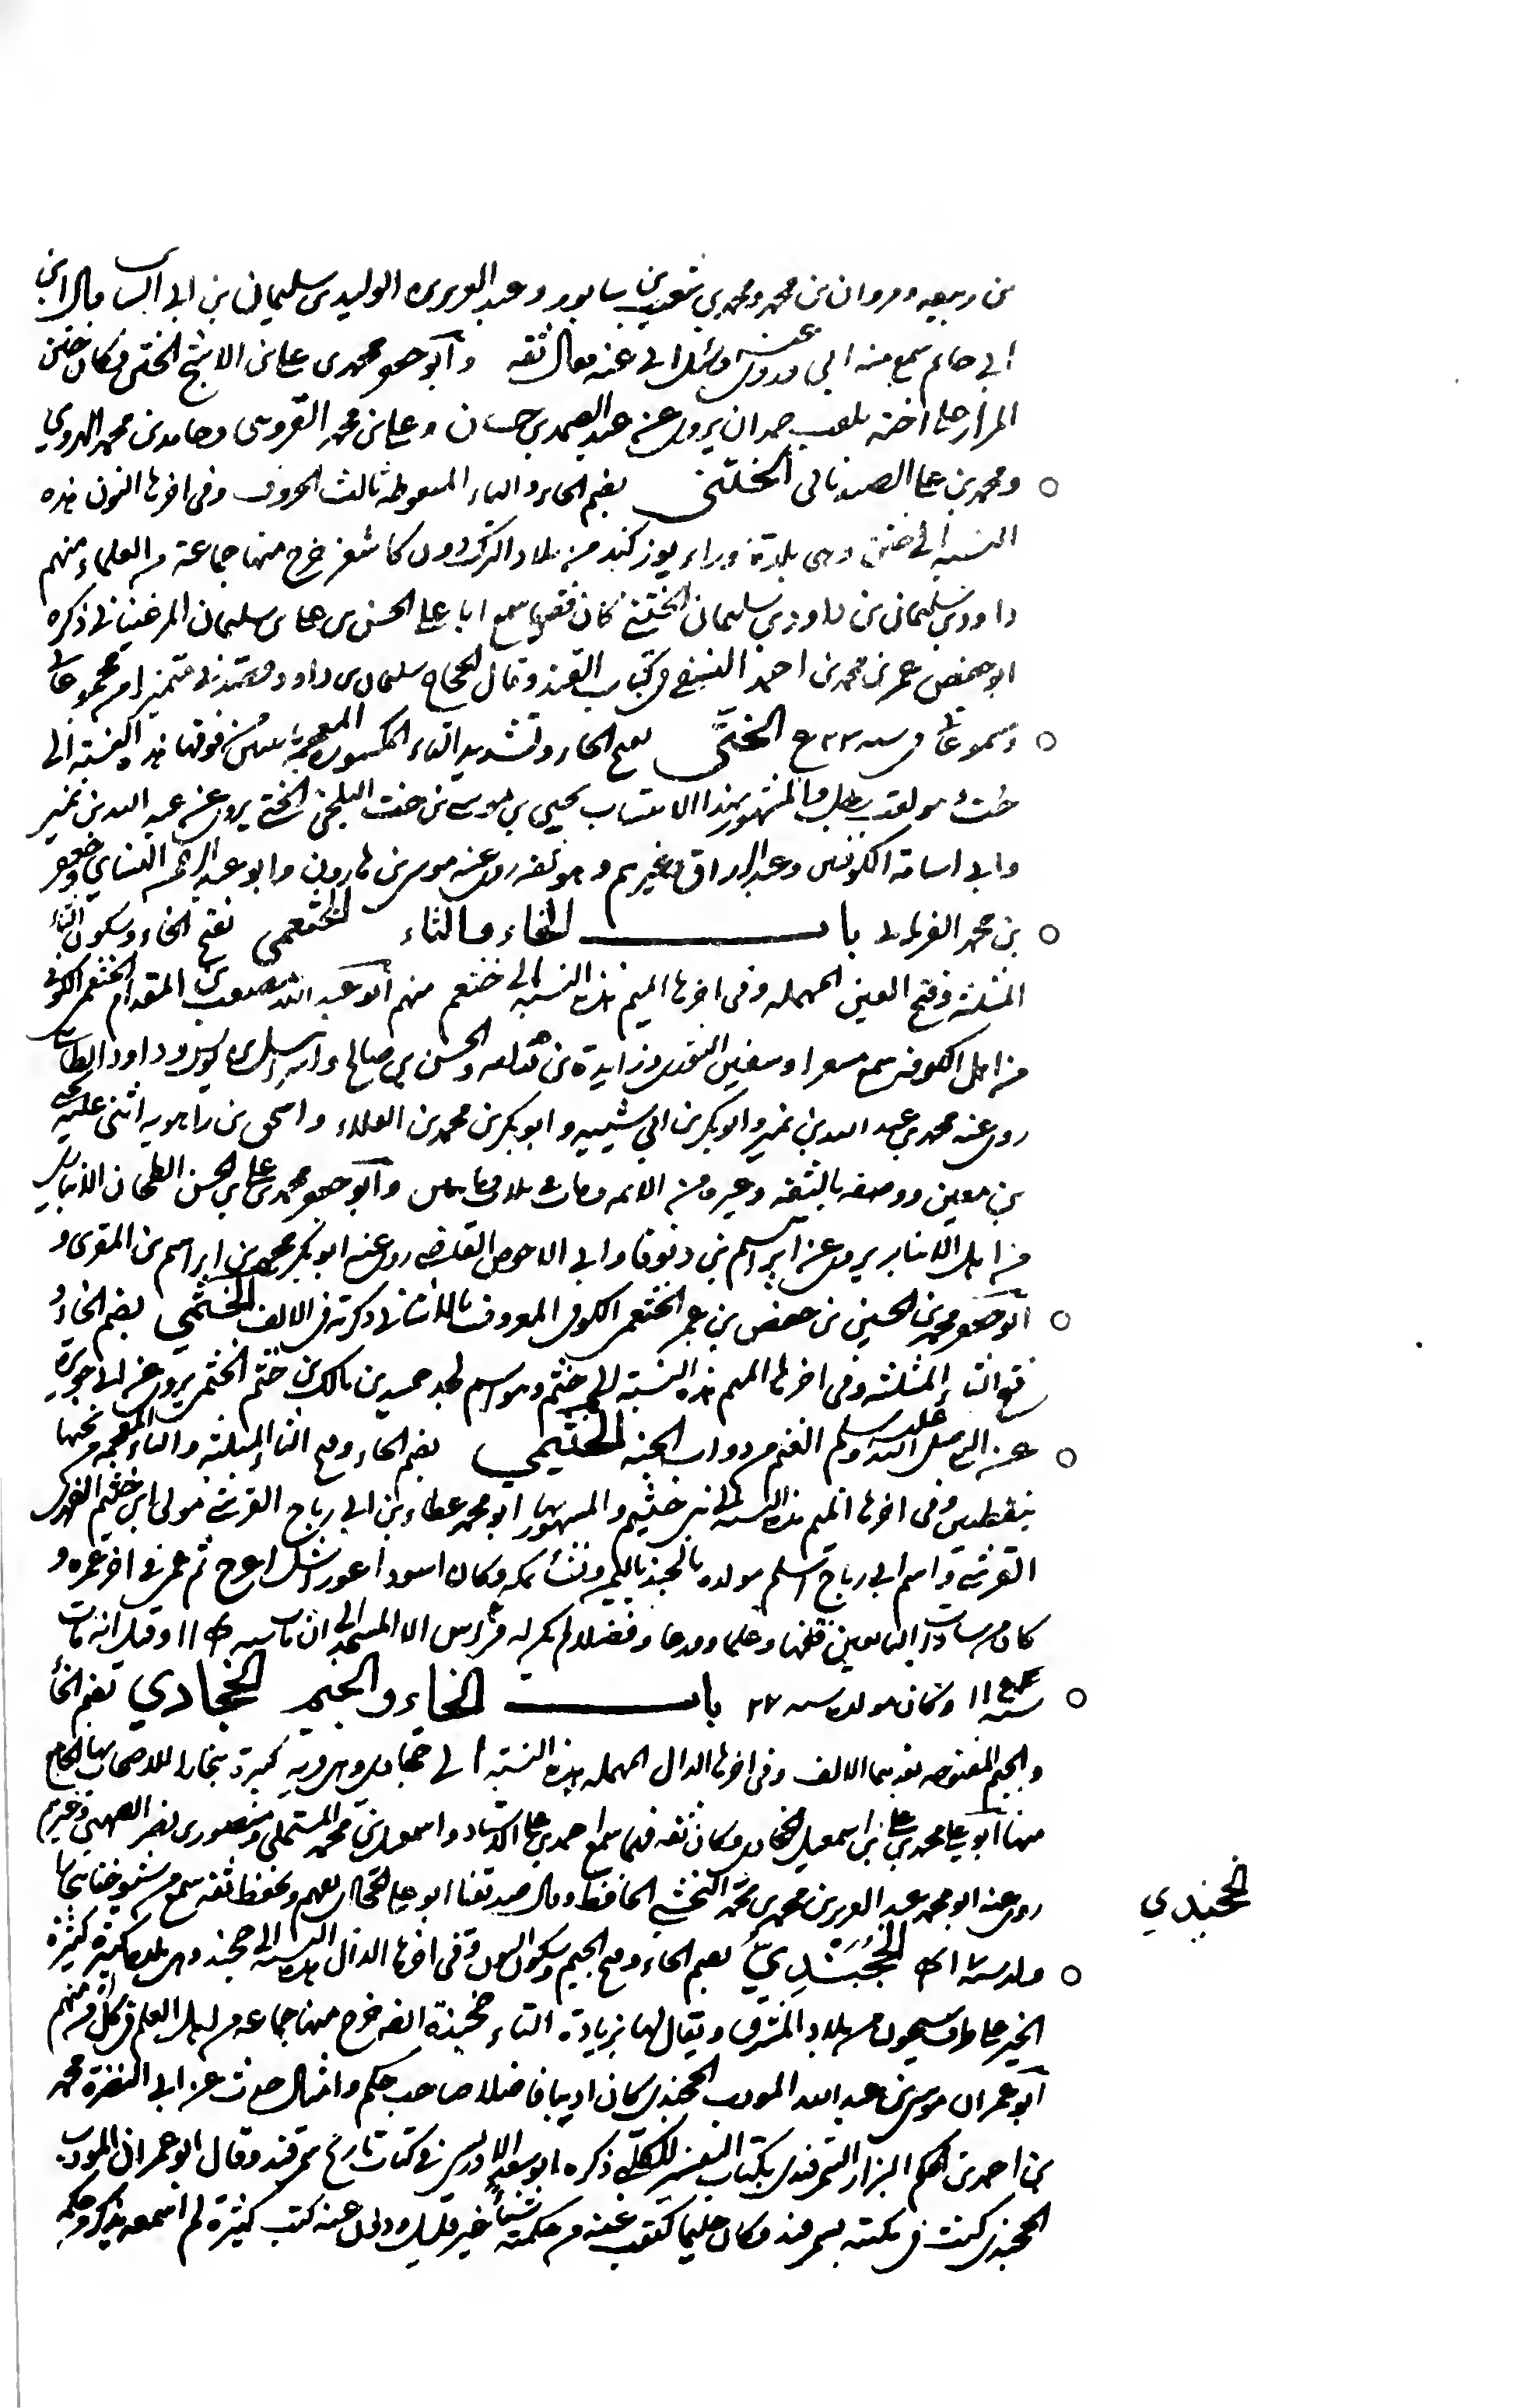 بن ربيعه ومروان بن محمد ومحمد بن شعيب بن سابور وعبد العزيز بن الوليد بن سليمان بن ابي السائب قال ابن
ابي حاتم سمع منه ابي وروى عنه وسئل ابي عنه فقال ثقه وابو جعفر محمد بن علي بن الختني وكان ختن
المرار على اخته يلقب حمدان يروى عن عبد الصمد بن حسان وعلي بن محمد وحامد بن محمد الهروي
ومحمد بن علي الصيدناني الختني بضم الخاء والتاء المنقوطه ثالث الحروف وفي اخرها النون هذه
النسبه الى ختن وهى بلدة وراء يوزكند من بلاد الترك دون كاشغر خرج منها جماعة من العلماء منهم
داود بن سليمان بن داود بن سليمان الختني كان فقيها سمع ابا علي الحسن بن علي بن سليمان المرغيناني ذكره
ابو حفص عمر بن محمد بن احمد النسفي في كتاب القند وقال الحجاج سليمان بن داود
ومسموعاتى في سنه ٥٢٣ الختي بفتح الخاء وتشديد التاء المكسوره المعجمه بنقطتين من فوقها هذه النسبه الى
خت وهو لقب بطل والمشهور بهذا الانتساب يحيى بن موسى بن خت البلخي الختي يروى عن عبد الله بن نمير
وابي اسامة الكوفيين وعبد الرزاق وغيرهم وهو ثقه روى عنه موسى بن هارون وابو عبد الرحمن النسائي وجعفر
بن محمد الفريابى باب الخاء والثاء الخثعمي بفتح الخاء وسكون الثاء
المثلثه وفتح العين المهمله وفى اخرها الميم هذه النسبه الى خثعم منهم ابو عبد الله مصعب بن المقدام الخثعمى الكوفي
من اهل الكوفه سمع مسعرا وسفيان الثورى وزايدة بن قدامه والحسن بن صالح واسرائيل بن يونس وداود الطائى
روى عنه محمد بن عبد الله بن نمير وابو بكر بن ابي شيبه وابو بكر بن محمد بن العلاء واسحق بن راهويه اثنى عليه يحيى
بن معين ووصفه بالثقه وغيره من الائمه ومات وابو جعفر محمد بن علي بن الحسن الطحان الانبارى
من اهل الانبار يروى عن ابراهيم بن دنوقا وابي الاحوص القاضى روى عنه ابو بكر محمد بن ابراهيم بن المقرى و
ابو جعفر محمد بن الحسين بن حفص بن عمر الخثعمى الكوفى المعروف بالاشناني ذكرته في الالف الخثمي بضم الخاء و
فتح الثاء المثلثه وفى اخرها الميم هذه النسبه الى خثم وهو اسم لجد حميد بن مالك بن خثم الخثمى يروى عن ابي هريرة
عن النبي صلى الله عليه وسلم الغنم من دواب الجنه الخثيمي بضم الخاء وفتح الثاء المثلثه والياء المعجمه من تحتها
بنقطتين وفى اخرها الميم هذه النسبه الى بنى خثيم والمشهور بها ابو محمد عطاء بن ابي رباح القرشي مولى ابن خثيم الفهرى
القرشى واسم ابي رباح اسلم مولده بالجند باليمن ونشأ بمكه وكان اسود اعور اشل اعرج ثم عمى في اخر عمره و
كان من سادات التابعين فقها وعلما وورعا وفضلا لم يكن له فراش الا المسجد الى ان مات سنه ١١٥ وقيل انه مات
سنه ١١٤ وكان مولده سنه ٢٧ باب الخاء والجيم الخجادي بضم الخاء
والجيم المفتوحه بعدهما الالف وفى اخرها الدال المهمله هذه النسبة الى خجادى وهى قريه كبيرة ببخارا
منها ابو علي محمد بن علي بن اسمعيل الخجادى وكان ثقه فيما سمع احمد بن علي الاستاد واسمعيل بن محمد المستملي ومنصور بن نصر الصهيبي وغيرهم
روى عنه ابو محمد عبد العزيز بن محمد بن محمد النخشبي الحافظ وقال صديقنا ابو علي الخجادى يفهم ويحفظ ثقه سمع من
ولد سنه ٤١٥ الخجندي بضم الخاء وفتح الجيم وسكون النون وفى اخرها الدال هذه النسبه الى خجند وهى بلده كبيرة كثيرة
الخير على طرف سيحون من بلاد المشرق ويقال لها بزيادة التاء خجندة ايضا خرج منها جماعه من اهل العلم في كل فن منهم
ابو عمران موسى بن عبد الله المودب الخجندى كان اديبا فاضلا صاحب حكم وامثال حدث عن ابي النضرة محمد
بن احمد بن الحكم البزار السمرقندى بكتاب التفسير للكلبي ذكره ابو سعد الادريسى في كتاب تاريخ سمرقند وقال ابو عمران المودب
الخجندى كنت في مكتبه بسمرقند وكان حليما كتبت عنه من حكمته شيئا غير قليل ودلى عنه كتب كثيرة لم اسمعه يذكر حكمه
الخجندي